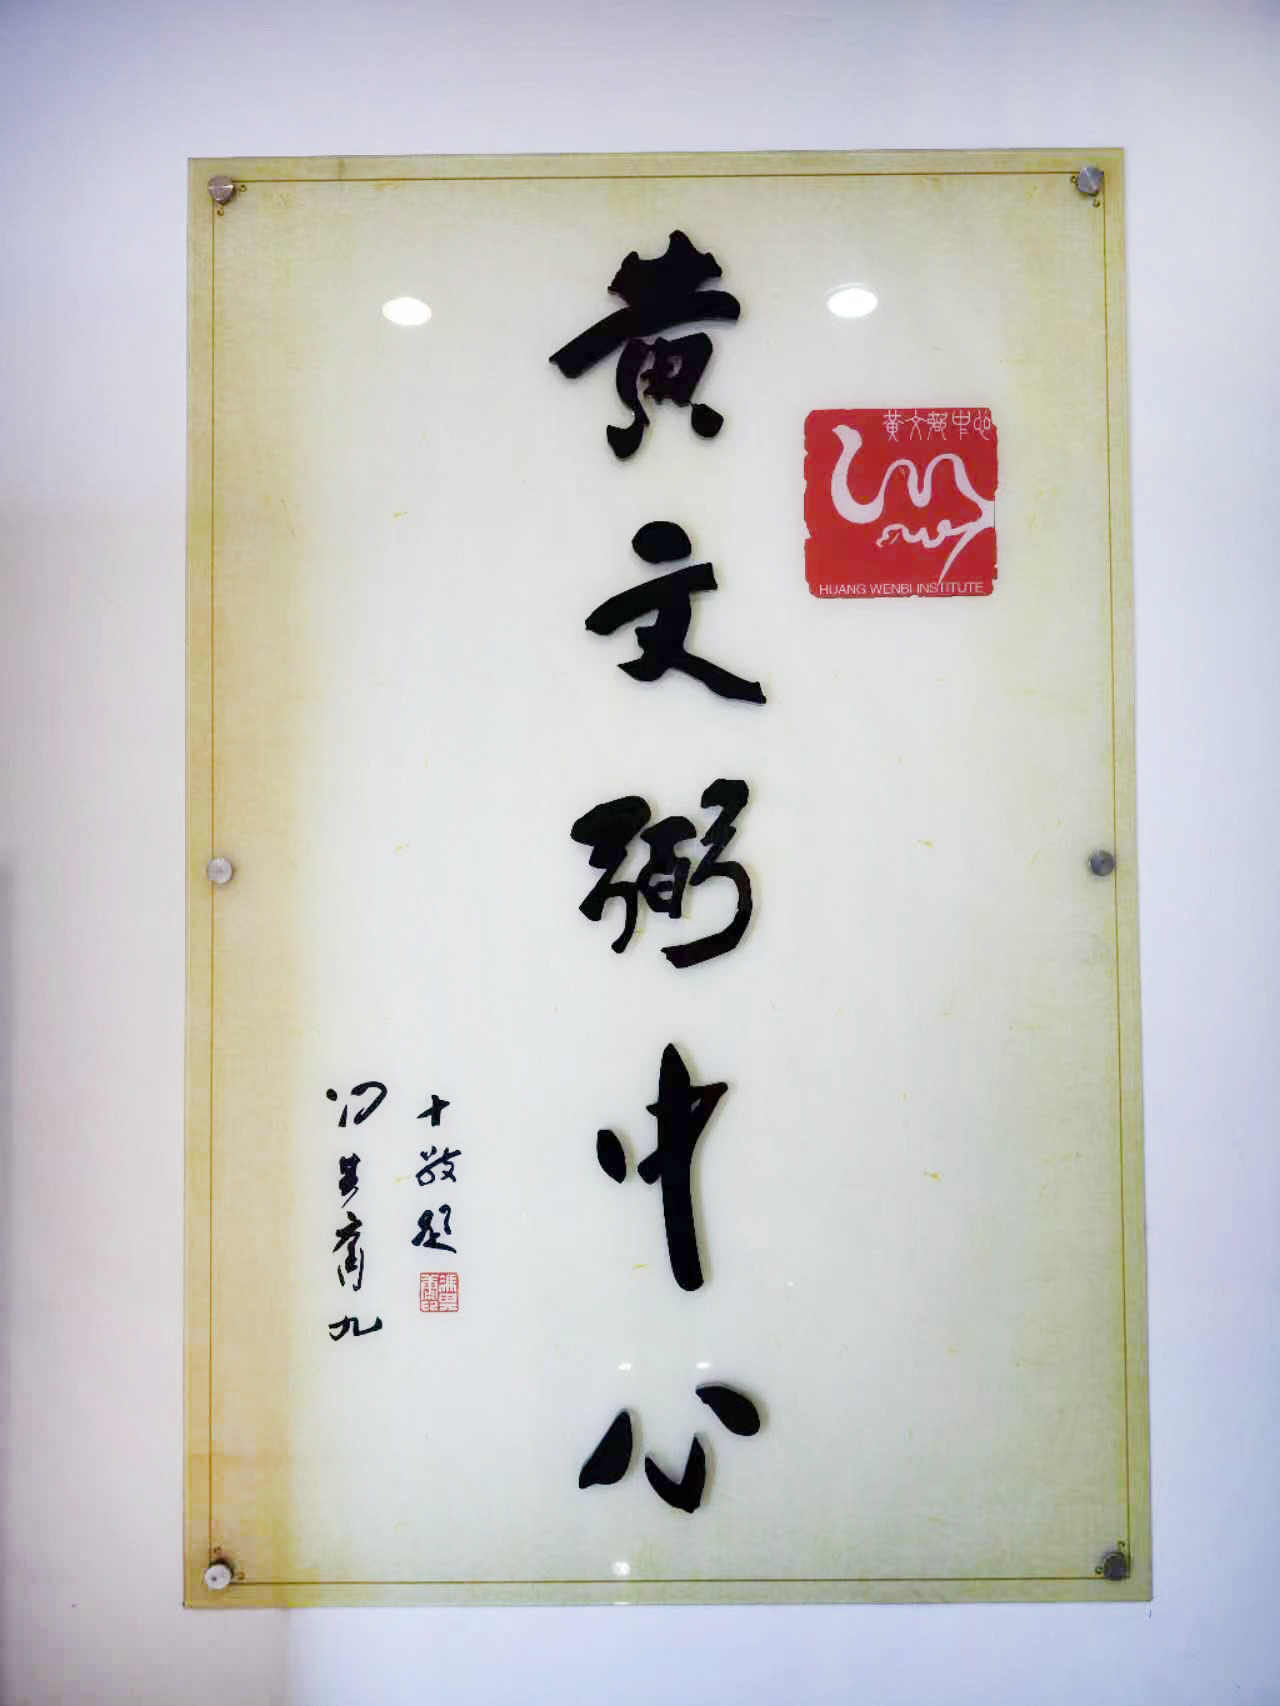 黄文弼中心
黄文弼中心
HUANG WENBI INSTITUTE
冯其庸九
十敬题
冯其庸印